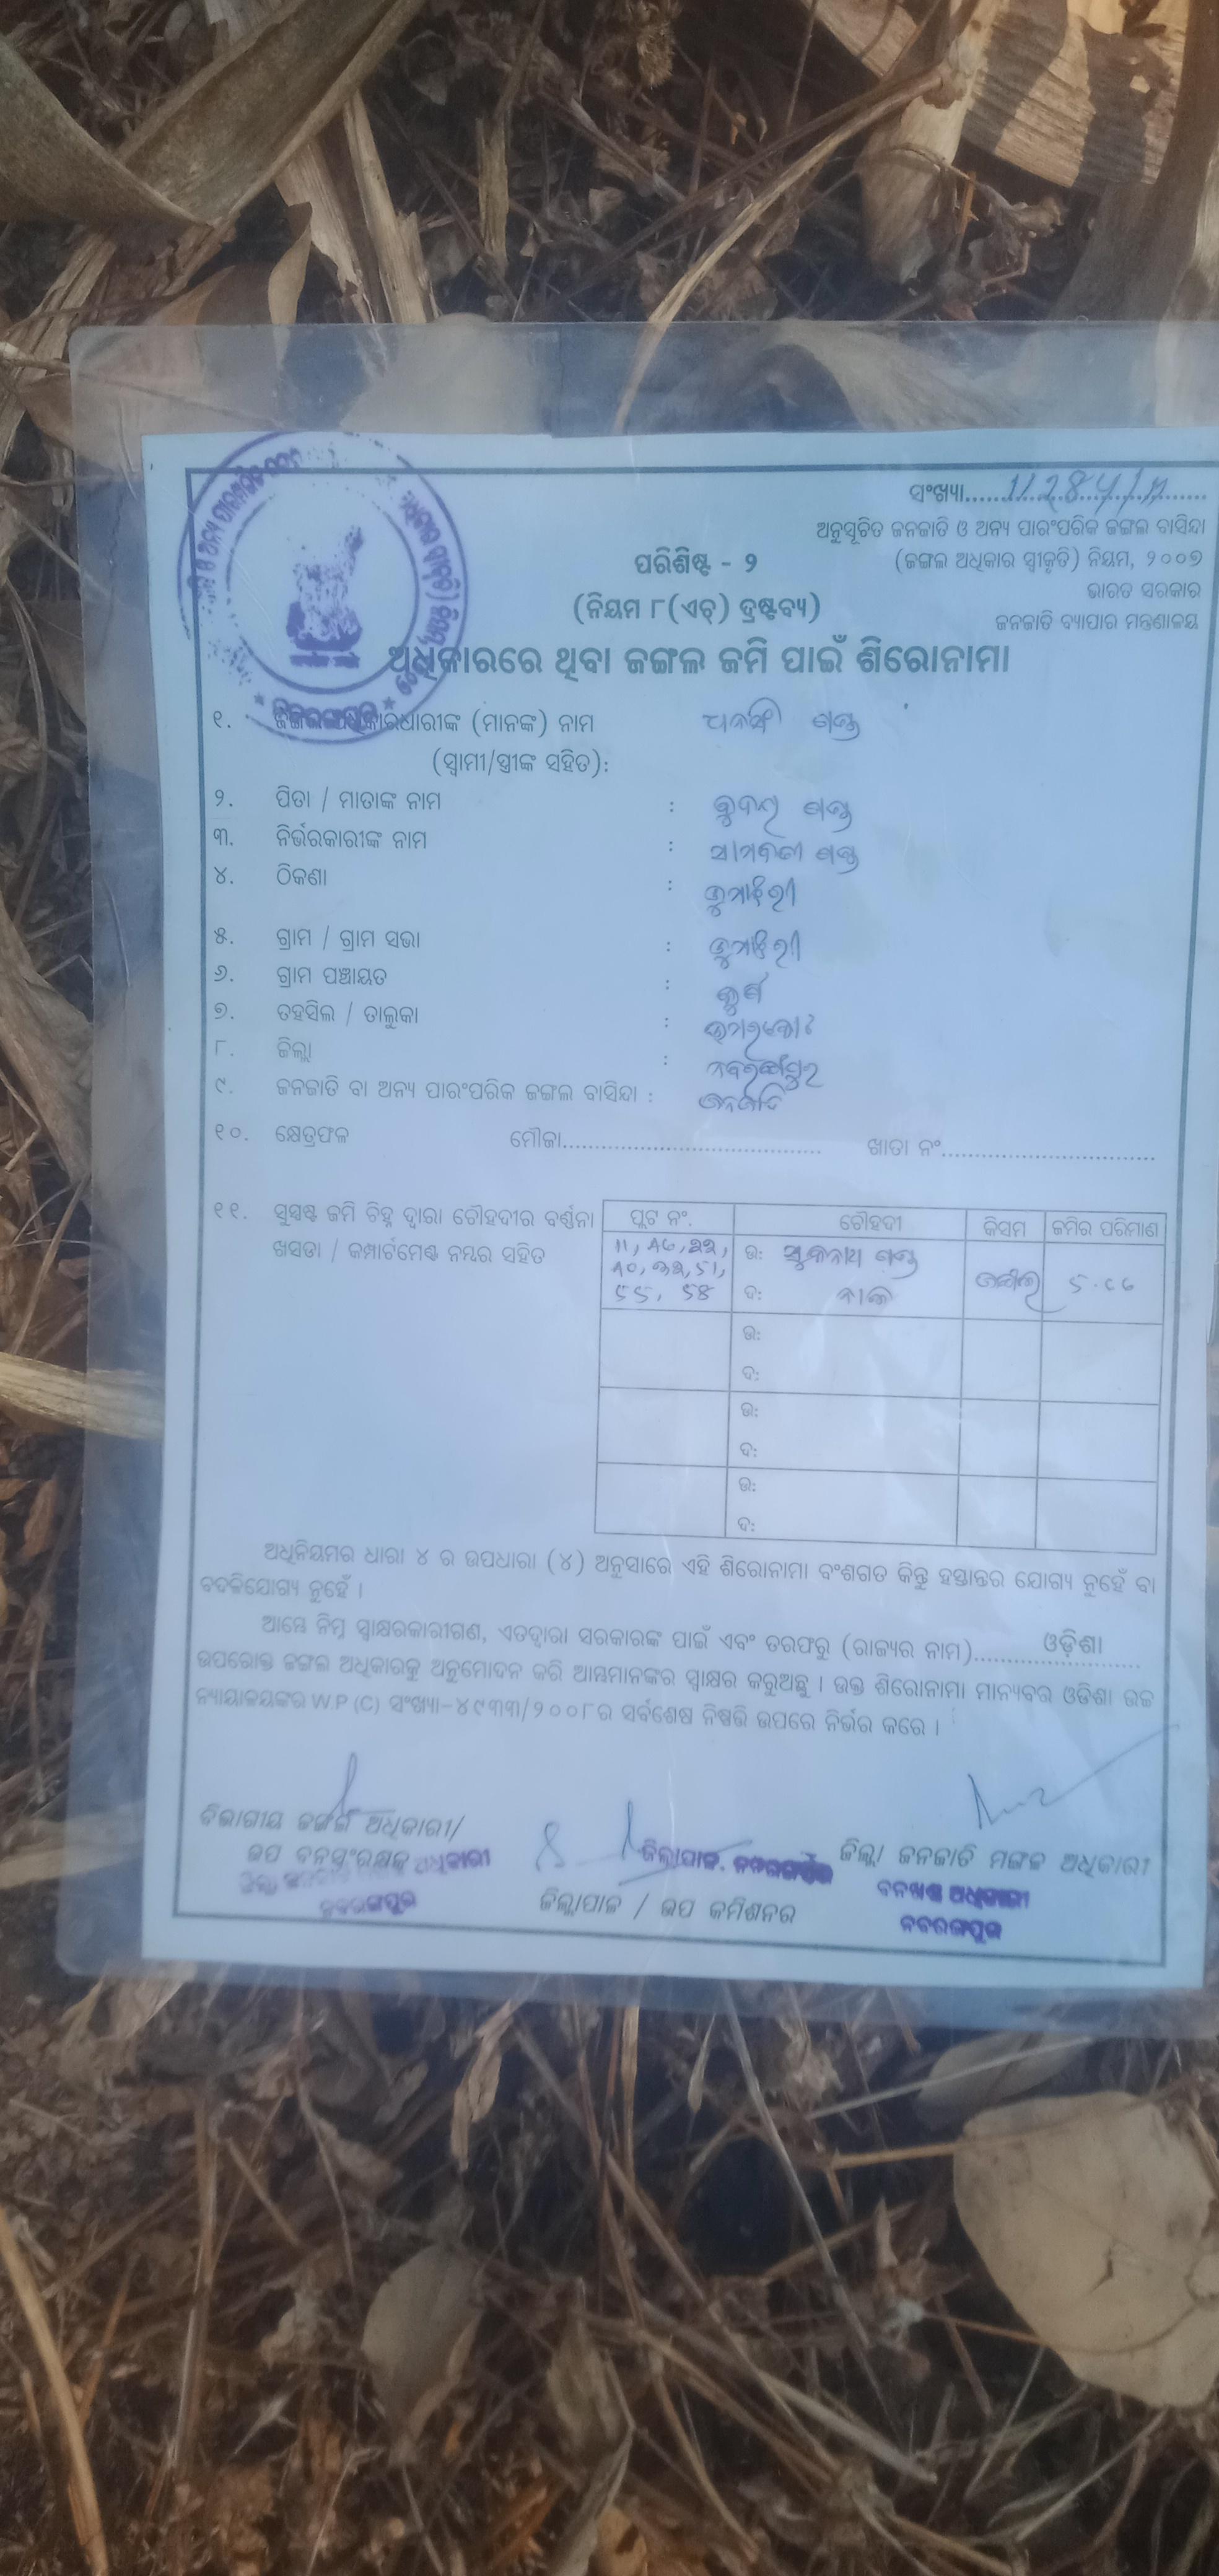 ସଂଖ୍ୟା
ଅନୁସୂଚିତ ଜନଜାତି ଓ ଅନ୍ୟ ପାରଂପରିକ ଜଙ୍ଗଲ ବାସିନ୍ଦା
(ଜଙ୍ଗଲ ଅଧିକାର ସ୍ୱୀକୃତି) ନିୟମ, ୨୦୦୭
ଭାରତ ସରକାର
ଜନଜାତି ବ୍ୟାପାର ମନ୍ତ୍ରଣାଳୟ
ପରିଶିଷ୍ଟ - ୨
(ନିୟମ ୮(ଏଚ୍) ଦ୍ରଷ୍ଟବ୍ୟ)
ଅଧିକାରରେ ଥିବା ଜଙ୍ଗଲ ଜମି ପାଇଁ ଶିରୋନାମା
୧. ଜଙ୍ଗଲ ଅଧିକାରଧାରୀଙ୍କ (ମାନଙ୍କ) ନାମ
(ସ୍ୱାମୀ/ସ୍ତ୍ରୀଙ୍କ ସହିତ):
୨. ପିତା / ମାତାଙ୍କ ନାମ :
୩. ନିର୍ଭରକାରୀଙ୍କ ନାମ :
୪. ଠିକଣା :
୫. ଗ୍ରାମ / ଗ୍ରାମ ସଭା :
୬. ଗ୍ରାମ ପଞ୍ଚାୟତ :
୭. ତହସିଲ / ତାଲୁକା : ଉମରକୋଟ
୮. ଜିଲ୍ଲା : ନବରଙ୍ଗପୁର
୯. ଜନଜାତି ବା ଅନ୍ୟ ପାରଂପରିକ ଜଙ୍ଗଲ ବାସିନ୍ଦା : ଜନଜାତି
୧୦. କ୍ଷେତ୍ରଫଳ ମୌଜା ଖାତା ନଂ
୧୧. ସୁସ୍ପଷ୍ଟ ଜମି ଚିହ୍ନ ଦ୍ୱାରା ଚୌହଦୀର ବର୍ଣ୍ଣନା
ଖସଡା / କମ୍ପାର୍ଟମେଣ୍ଟ ନମ୍ବର ସହିତ
ପ୍ଲଟ ନଂ. ଚୌହଦୀ କିସମ ଜମିର ପରିମାଣ
ଉ:
ଦ:
ଉ:
ଦ:
ଉ:
ଦ:
ଉ:
ଦ:
ଅଧିନିୟମର ଧାରା ୪ ର ଉପଧାରା (୪) ଅନୁସାରେ ଏହି ଶିରୋନାମା ବଂଶଗତ କିନ୍ତୁ ହସ୍ତାନ୍ତର ଯୋଗ୍ୟ ନୁହେଁ ବା
ବଦଳିଯୋଗ୍ୟ ନୁହେଁ ।
ଆମ୍ଭେ ନିମ୍ନ ସ୍ୱାକ୍ଷରକାରୀଗଣ, ଏତଦ୍ୱାରା ସରକାରଙ୍କ ପାଇଁ ଏବଂ ତରଫରୁ (ରାଜ୍ୟର ନାମ) ଓଡ଼ିଶା
ଉପରୋକ୍ତ ଜଙ୍ଗଲ ଅଧିକାରକୁ ଅନୁମୋଦନ କରି ଆମ୍ଭମାନଙ୍କର ସ୍ୱାକ୍ଷର କରୁଅଛୁ । ଉକ୍ତ ଶିରୋନାମା ମାନ୍ୟବର ଓଡିଶା ଉଚ୍ଚ
ନ୍ୟାୟାଳୟଙ୍କର W.P (C) ସଂଖ୍ୟା-୪୯୩୩/୨୦୦୮ ର ସର୍ବଶେଷ ନିଷ୍ପତ୍ତି ଉପରେ ନିର୍ଭର କରେ ।
ବିଭାଗୀୟ ଜଙ୍ଗଲ ଅଧିକାରୀ/
ଉପ ବନସଂରକ୍ଷକ
ଅଧିକାରୀ
ନବରଙ୍ଗପୁର
ଜିଲ୍ଲାପାଳ, ନବରଙ୍ଗପୁର
ଜିଲ୍ଲାପାଳ / ଉପ କମିଶନର
ଜିଲ୍ଲା ଜନଜାତି ମଙ୍ଗଳ ଅଧିକାରୀ
ବନଖଣ୍ଡ ଅଧିକାରୀ
ନବରଙ୍ଗପୁର